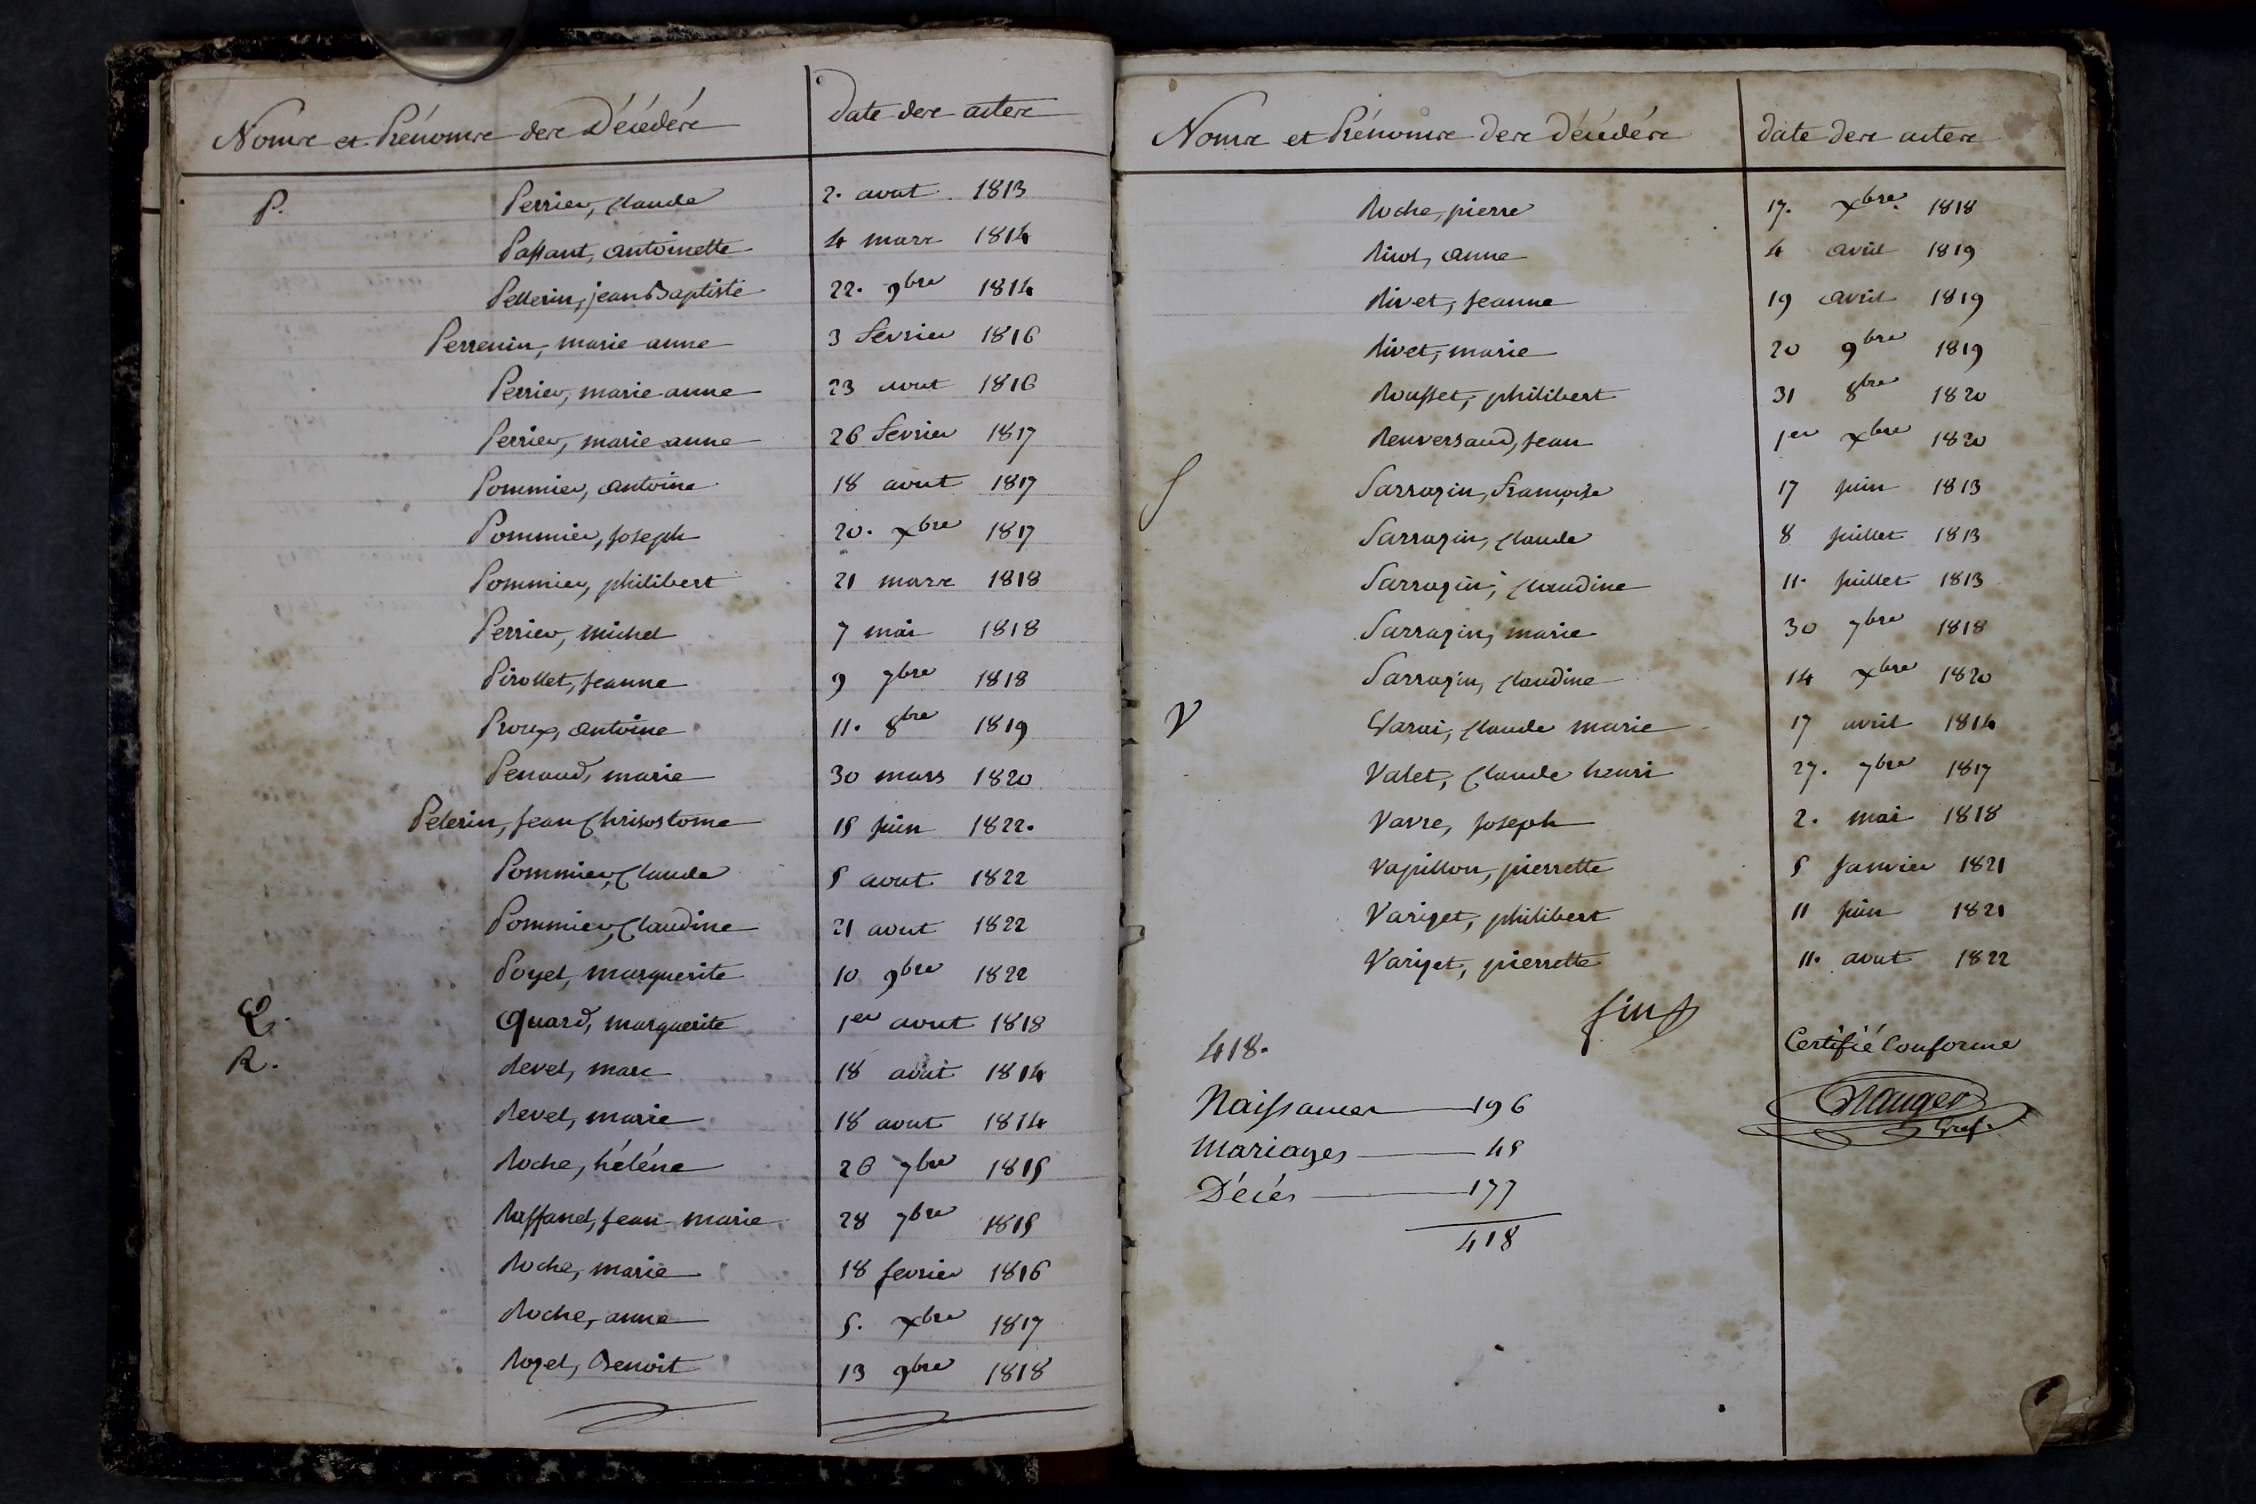 Noms et Prénoms des Décédés date des actes
P. Perrier, Claude 2. aout 1813
Passant, antoinette 4 mars 1814
Pellerin, jean Baptiste 22. 9bre 1814
Perrenin, marie anne 3 fevrier 1816
Perrier, marie anne 23 aout 1816
Perrier, marie anne 26 fevrier 1817
Pommier, antoine 18 aout 1817
Pommier, joseph 20. xbre 1817
Pommier, philibert 21 mars 1818
Perrier, michel 7 mai 1818
Pirollet, jeanne 9 7bre 1818
Proux, antoine 11. 8bre 1819
Penaud, marie 30 mars 1820
Pelerin, jean Chrisostome 15 juin 1822.
Pommier, Claude 5 aout 1822
Pommier, Claudine 21 aout 1822
Poyet, marguerite 10 9bre 1822
Q. Quard, marguerite 1er aout 1818
R. Revel, marc 18 aout 1814
Revel, marie 18 aout 1814
Roche, héléne 26 7bre 1815
Raffanel, jean marie 28 7bre 1815
Roche, marie 18 fevrier 1816
Roche, anne 5. xbre 1817
Rozel, Benoit 13 9bre 1818
Noms et Prénoms des Décédés date des actes
Roche, pierre 17. xbre. 1818
anne 4 avril 1819
Rivet, jeanne 19 avril 1819
Rivet, marie 20 9bre 1819
Rousset, philibert 31 8bre 1820
Renversaud, jean 1er xbre 1820
S Sarrazin, françoise 17 juin 1813
Sarrazin, Claude 8 juillet 1813
Sarrazin, Claudine 11. juillet 1813
Sarrazin, marie 30 7bre 1818
Sarrazin, Claudine 14 xbre 1820
V Varai, Claude marie 17 avril 1814
Valet, Claude henri 27. 7bre 1817
Vavre, joseph 2. mai 1818
Vapillon, pierrette 5 janvier 1821
Varizet, philibert 11 juin 1821
Varizet, pierrette 11. aout 1822
fin
418. Certifié Conforme
Naissances 196
Mariages 45
Décés 177
418